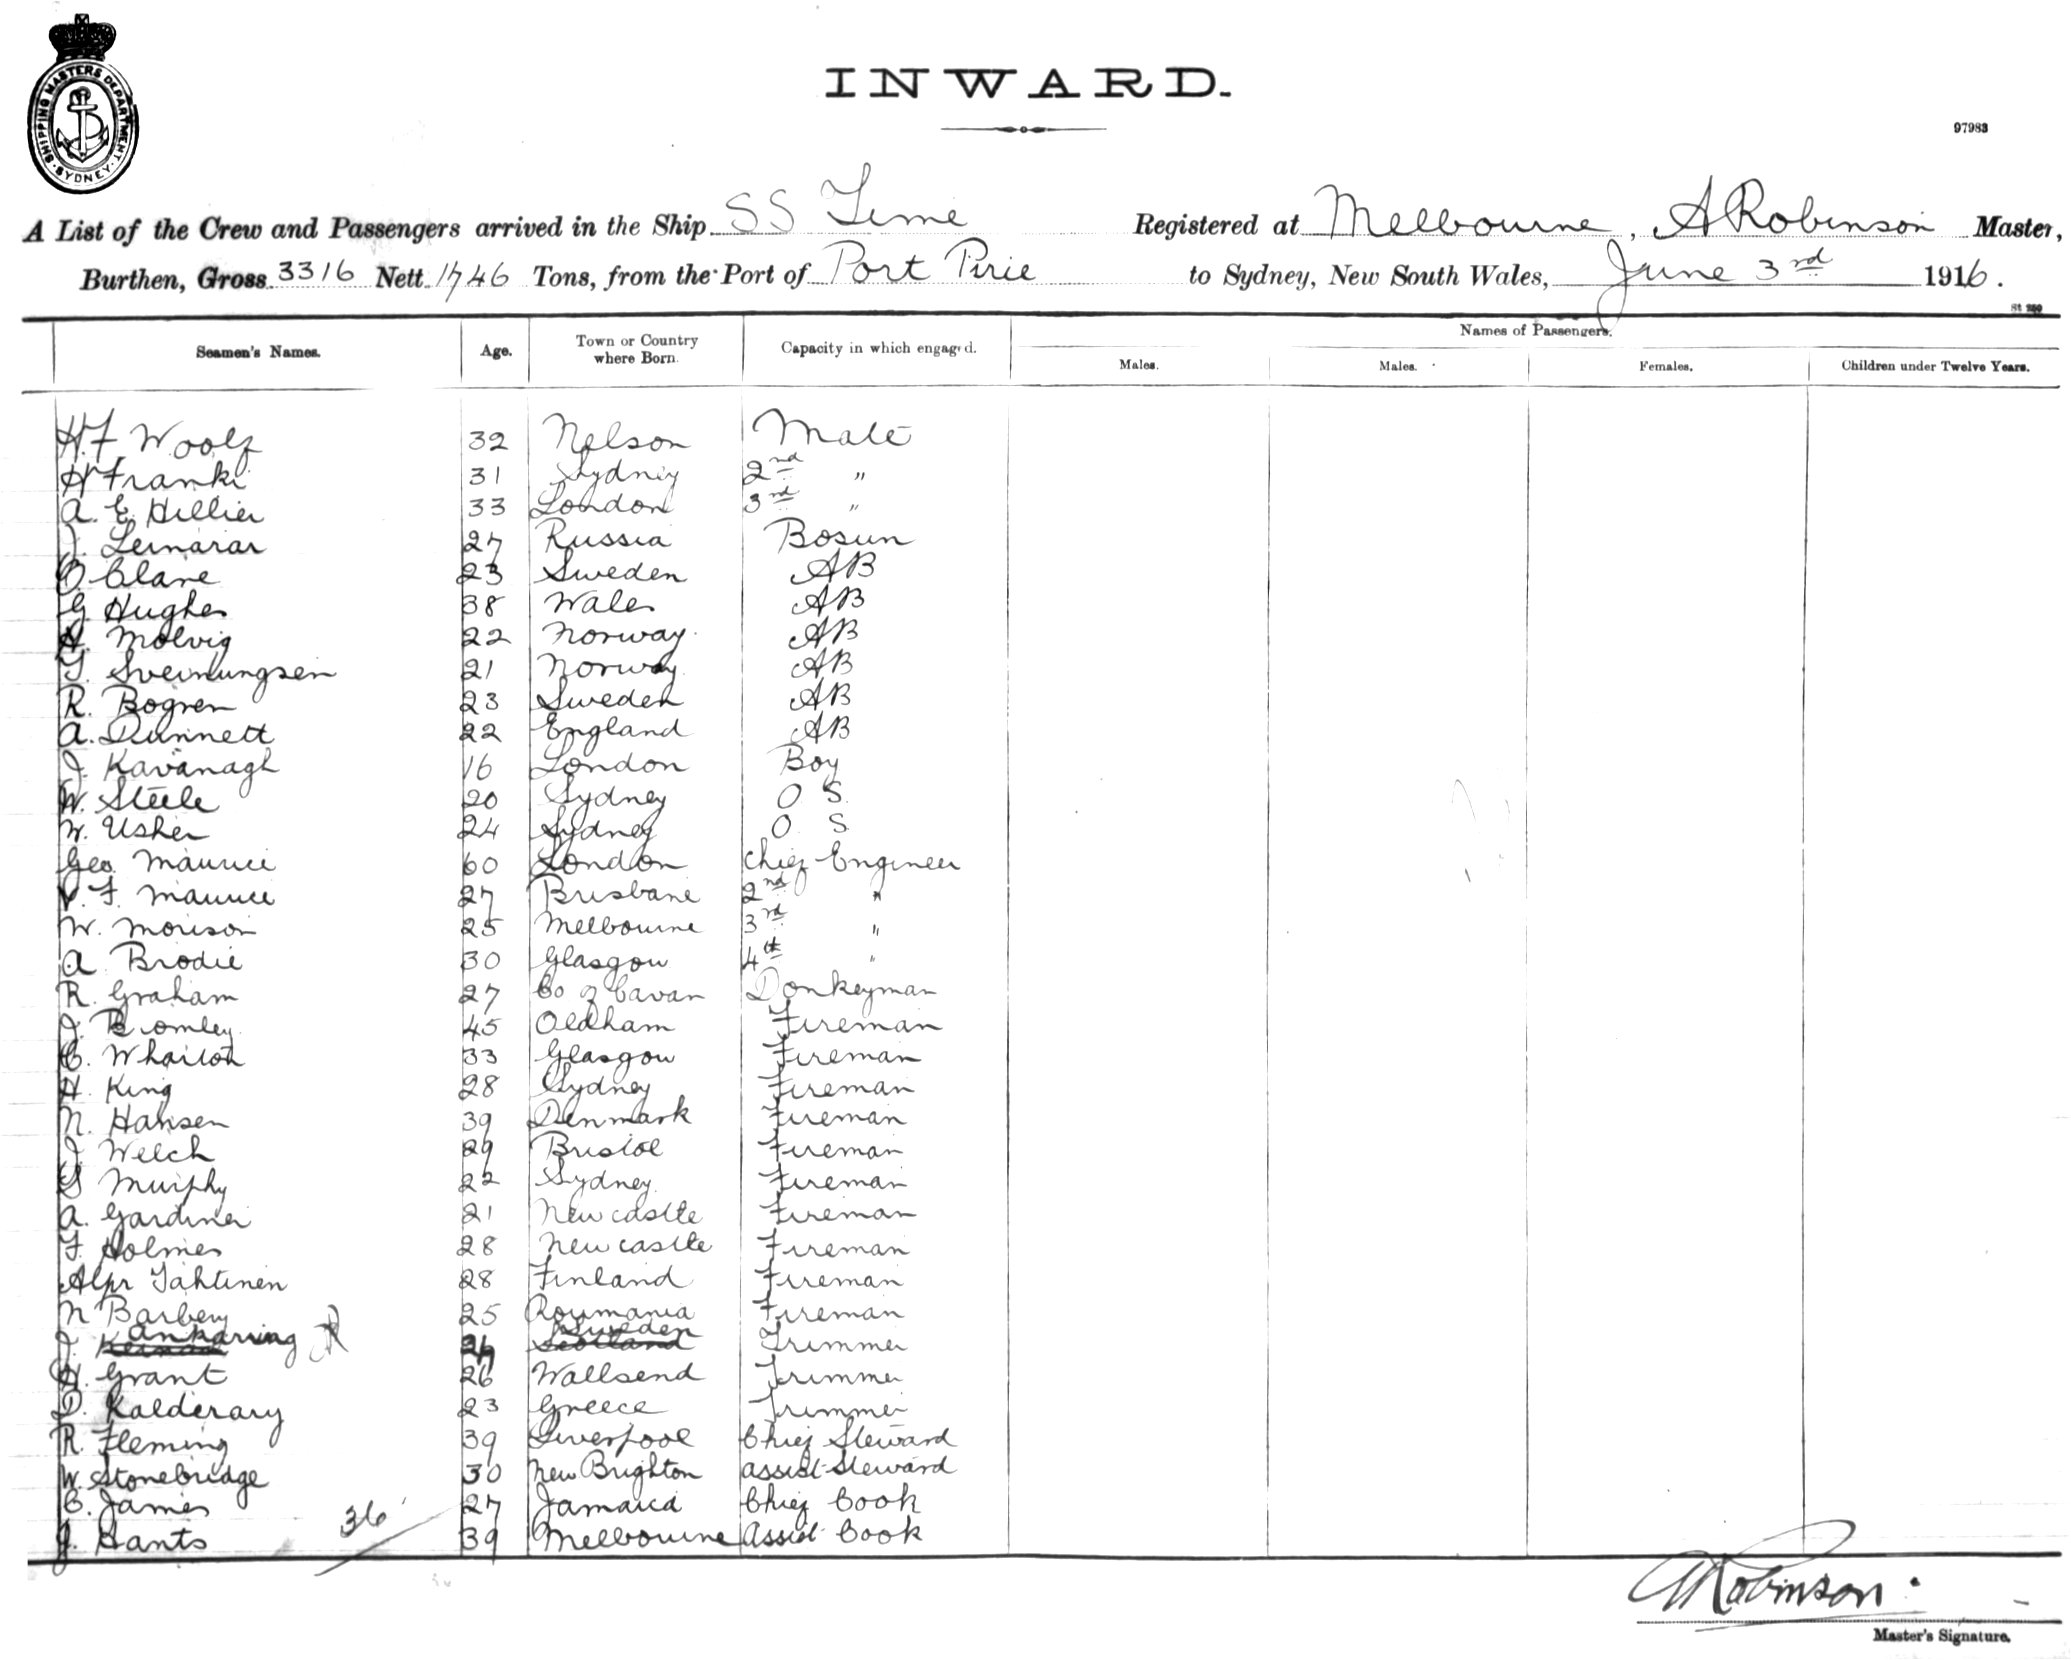 SHIPPING MASTERS DEPARTMENT. SYDNEY
INWARD.
97983
A List of the Crew and Passengers arrived in the Ship SS Time Registered at Melbourne, A Robinson Master,
Burthen, Gross 3316 Nett 1746 Tons, from the Port of Port Pirie to Sydney, New South Wales, June 3rd 1916.
St 250
Names of Passengers.
Seamen's Names. Age. Town or Country where Born. Capacity in which engaged. Males. Males. Females. Children under Twelve Years.
H.F. Woolf 32 Nelson Mate
H Franki 31 Sydney 2nd "
A. E. Hillier 33 London 3rd "
J. Leinarar 27 Russia Bosun
O. Clane 23 Sweden AB
G Hughes 38 Wales AB
H. Molvig 22 Norway AB
T. Sveinungsen 21 Norway AB
R. Bogren 23 Sweden AB
A. Dunnett 22 England AB
J. Kavanagh 16 London Boy
W. Steele 20 Sydney O S
W. Usher 24 Sydney O S
Geo Maurice 60 London Chief Engineer
F. Maurice 27 Brisbane 2nd "
W. Morison 25 Melbourne 3rd "
A Brodie 30 Glasgow 4th "
R. Graham 27 Co of Cavan Donkeyman
J. Bromley 45 Oldham Fireman
C. Wharton 33 Glasgow Fireman
H. King 28 Sydney Fireman
N. Hansen 39 Denmark Fireman
J. Welch 29 Bristol Fireman
S Murphy 22 Sydney Fireman
A. Gardiner 21 Newcastle Fireman
F. Holmes 28 Newcastle Fireman
Alfr Tahtinen 28 Finland Fireman
N Barbery 25 Roumania Fireman
J. Ankarring Sweden Scotland Trimmer
H. Grant 26 Wallsend Trimmer
D. Kalderary 23 Greece Trimmer
R. Fleming 39 Liverpool Chief Steward
W. Stonebridge 30 New Brighton Assist Steward
C. James 27 Jamaica Chief Cook
J. Hants 39 Melbourne Assist Cook
36
A Robinson
Master's Signature.